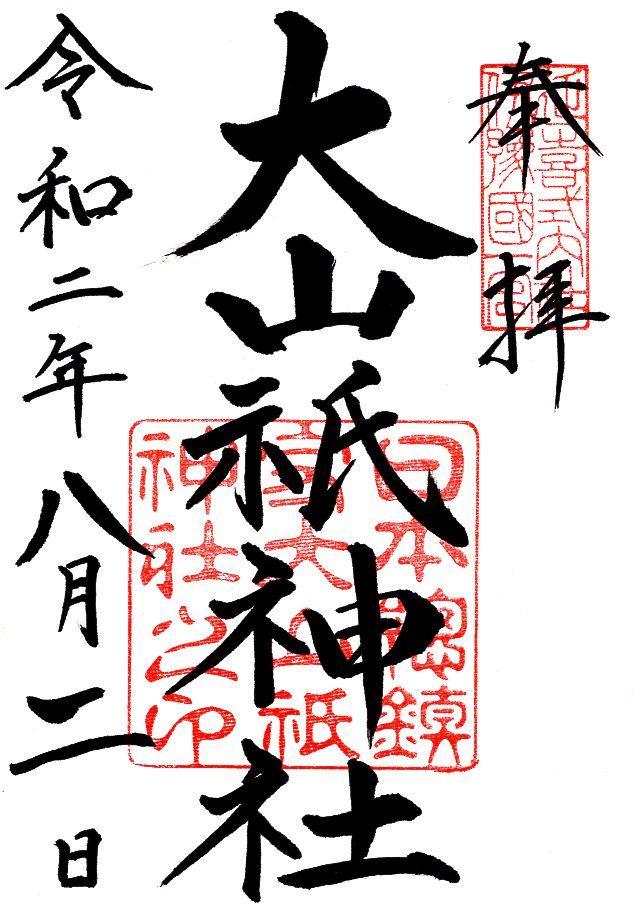 奉拝
延喜式内社
伊豫國一宮
大山祇神社
日本總鎮
守大山祇
神社之印
令和二年八月二日